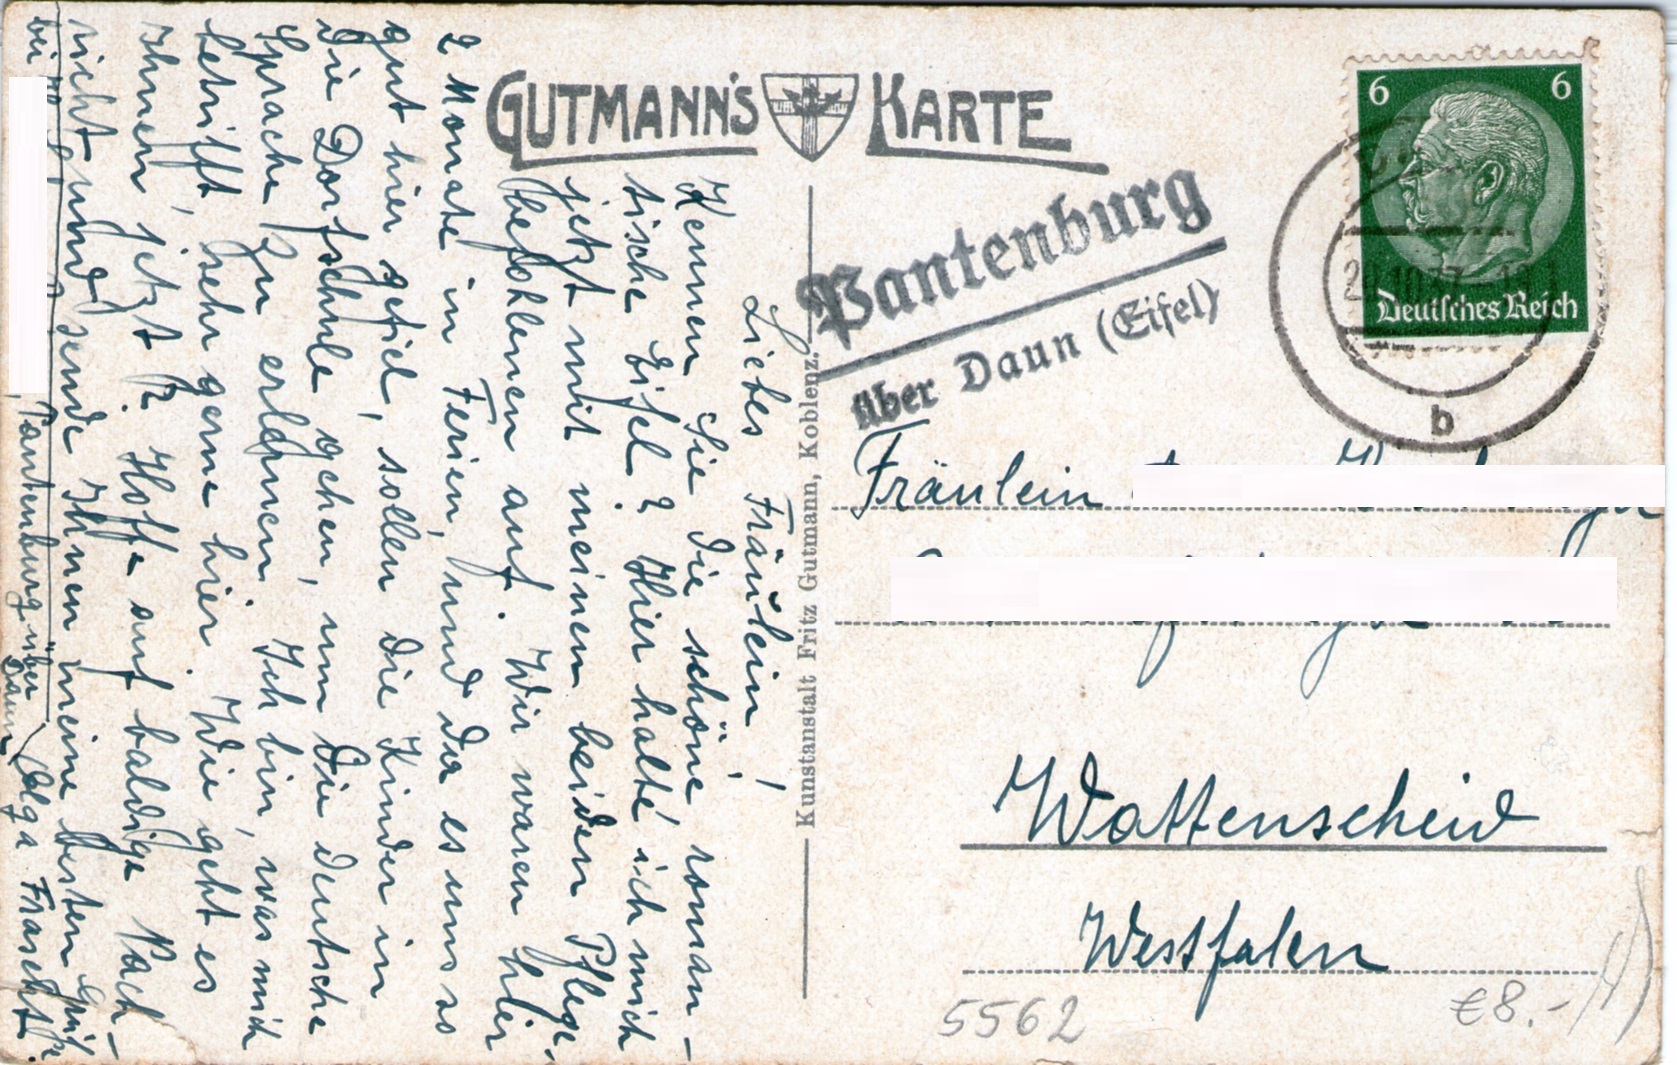 GUTMANN'S KARTE
Liebes Fräulein!
Kennen Sie die schöne roman-
tische Eifel? Hier halte ich mich
jetzt mit meinen beiden Pflege-
befohlenen auf. Wir waren hier
2 Monate in Ferien, und da es uns so
gut hier gefiel, sollen die Kinder in
die Dorfschule gehen, um die deutsche
Sprache zu erlernen. Ich bin, was mich
betrifft, sehr gerne hier. Wie geht es
Ihnen, jetzt? Hoffe auf baldige Nach-
richt und sende Ihnen meine besten Grüße
Olga
bei
Pantenburg über
Daun
Kunstanstalt Fritz Gutmann, Koblenz.
Pantenburg
über Daun (Eifel)
6 6
Deutsches Reich
b
Fräulein
Wattenscheid
Westfalen
5562
€8.-